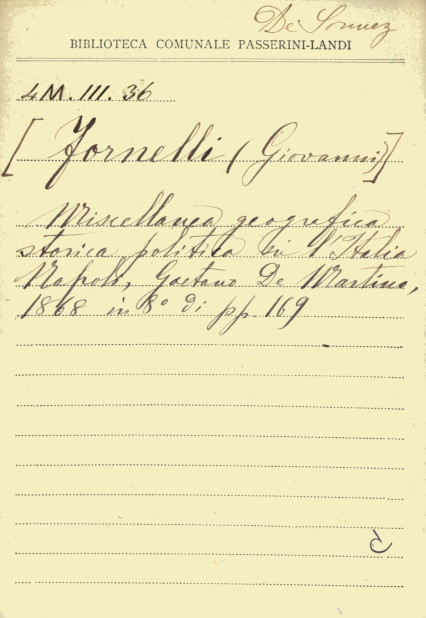 De
BIBLIOTECA COMUNALE PASSERINI-LANDI
4M.III.36
[Fornelli (Giovanni)]
Miscellanea geografica
storica politica su l'Italia
Napoli, Gaetano De Martino,
1868 in 8° di pp 169